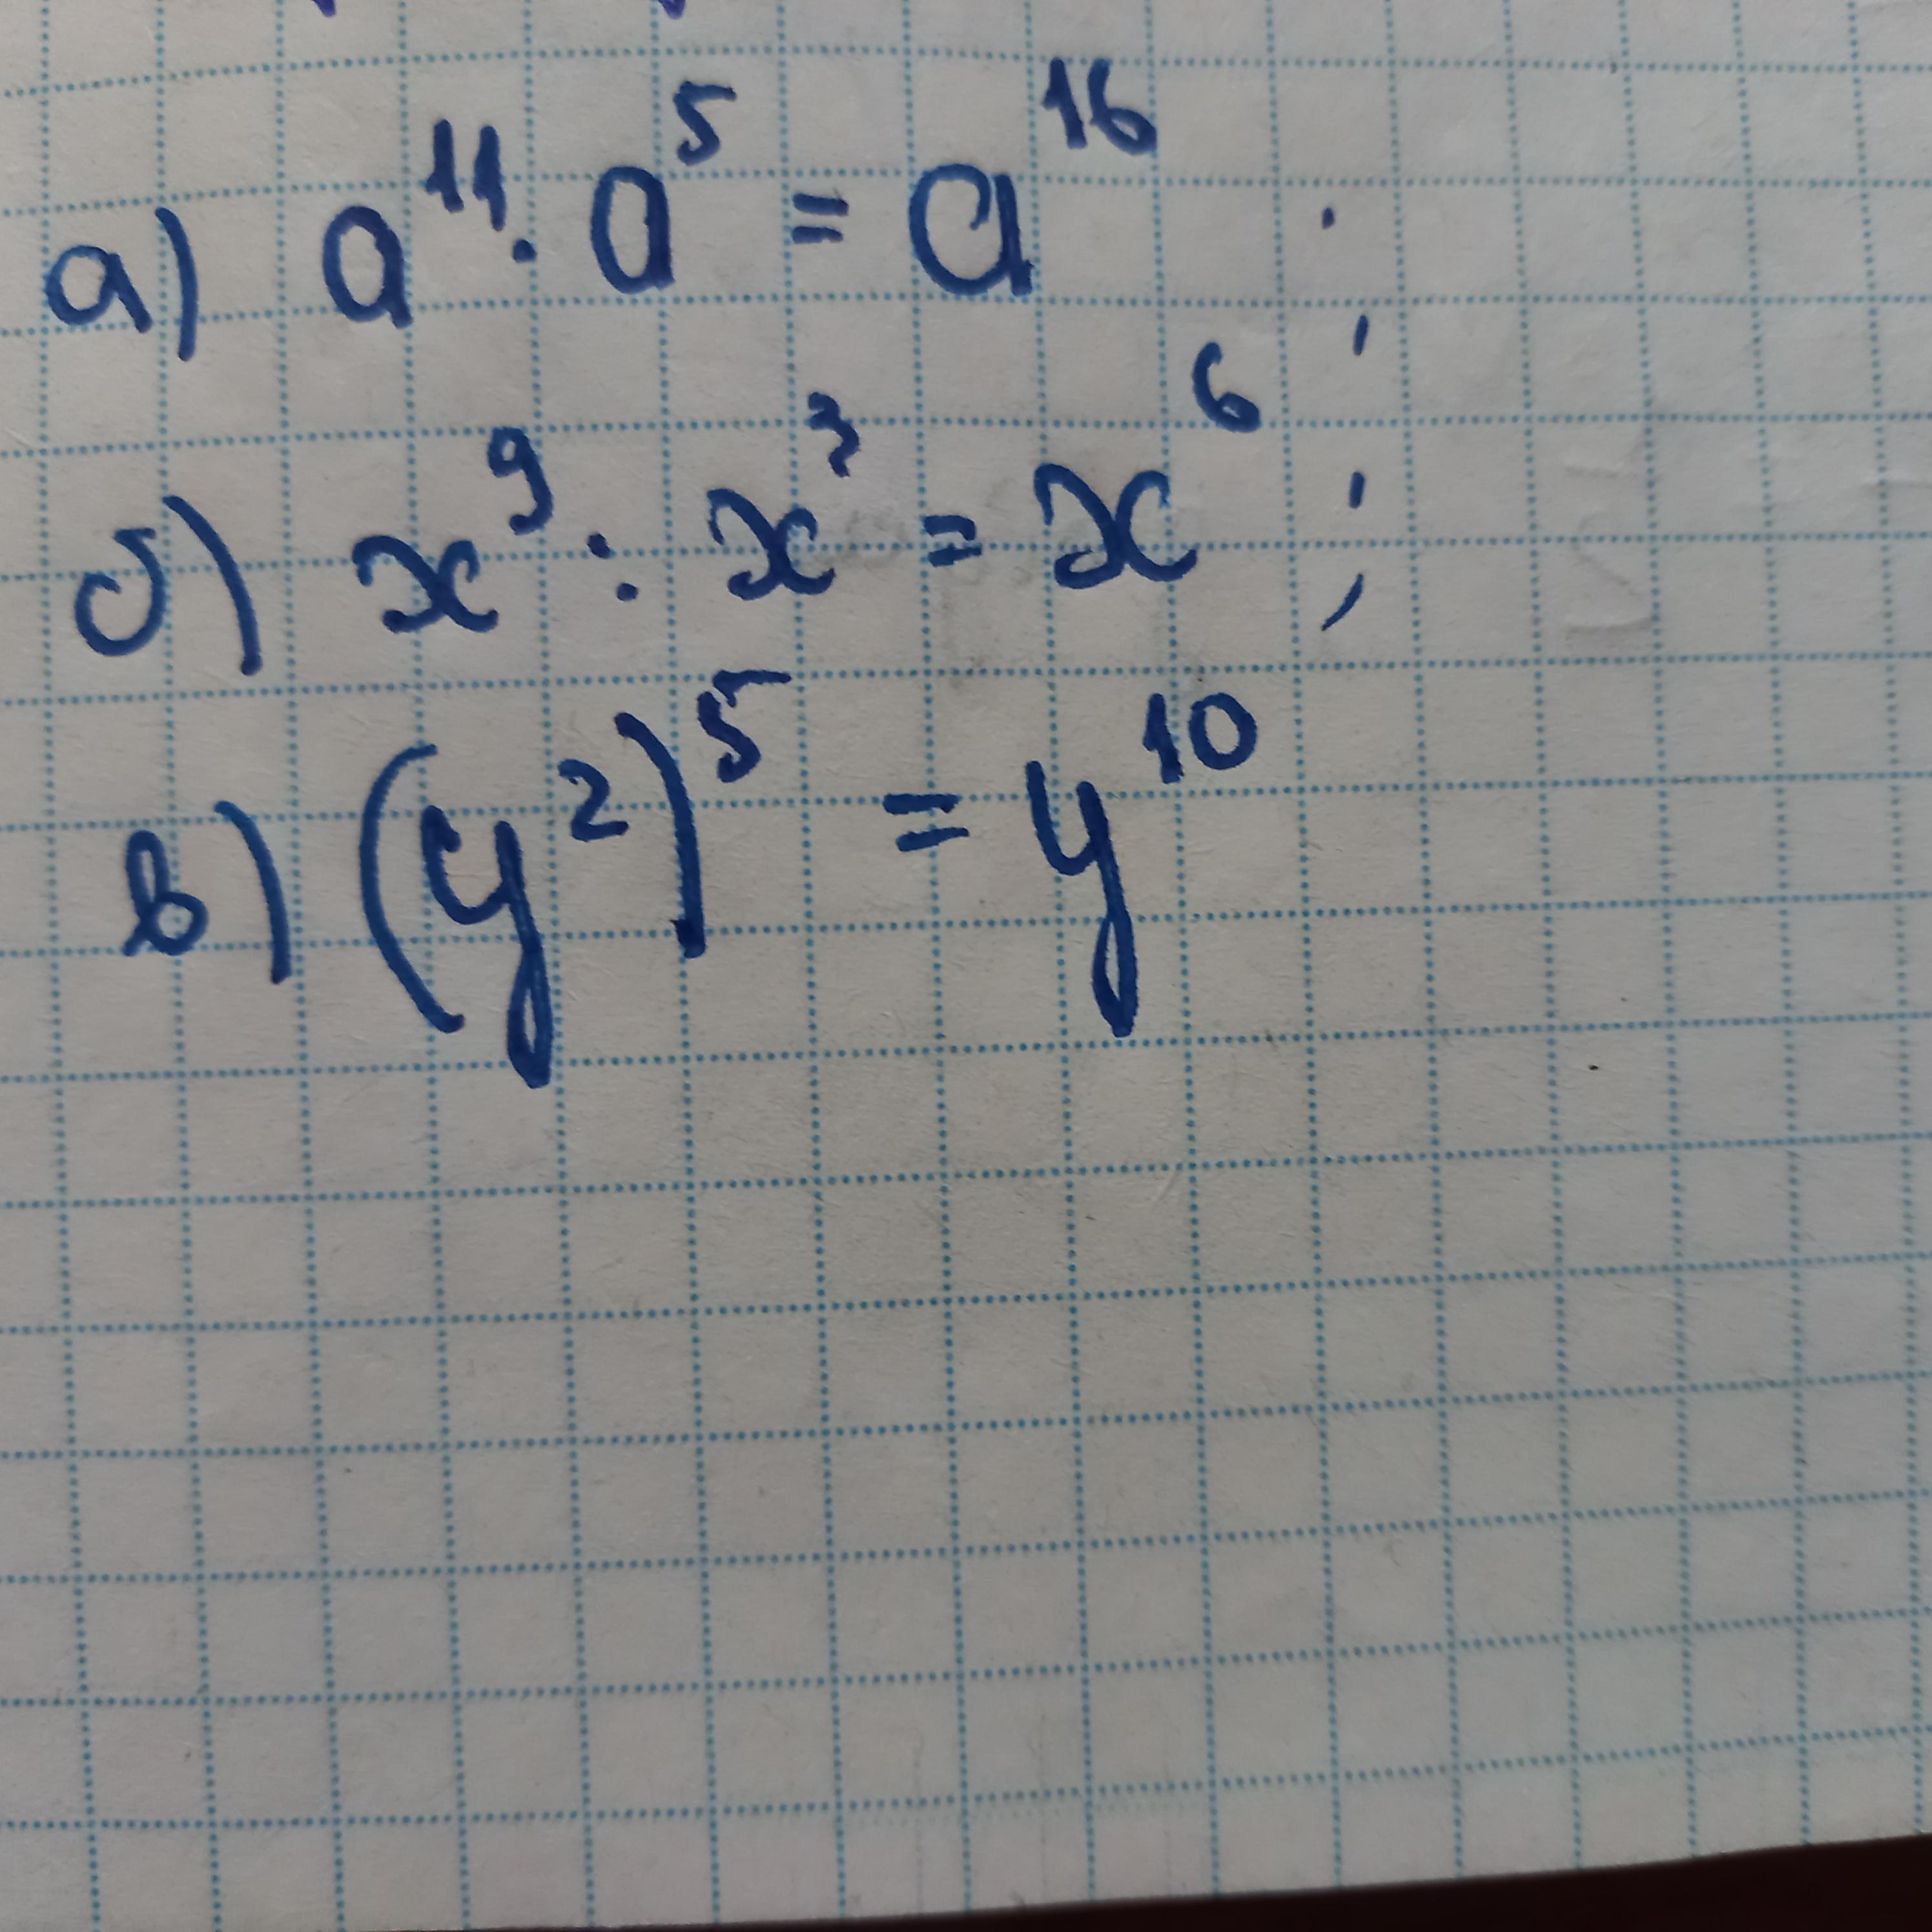 а) a¹¹ · a⁵ = a¹⁶ ;
б) x⁹ : x³ = x⁶ ;
в) (y²)⁵ = y¹⁰